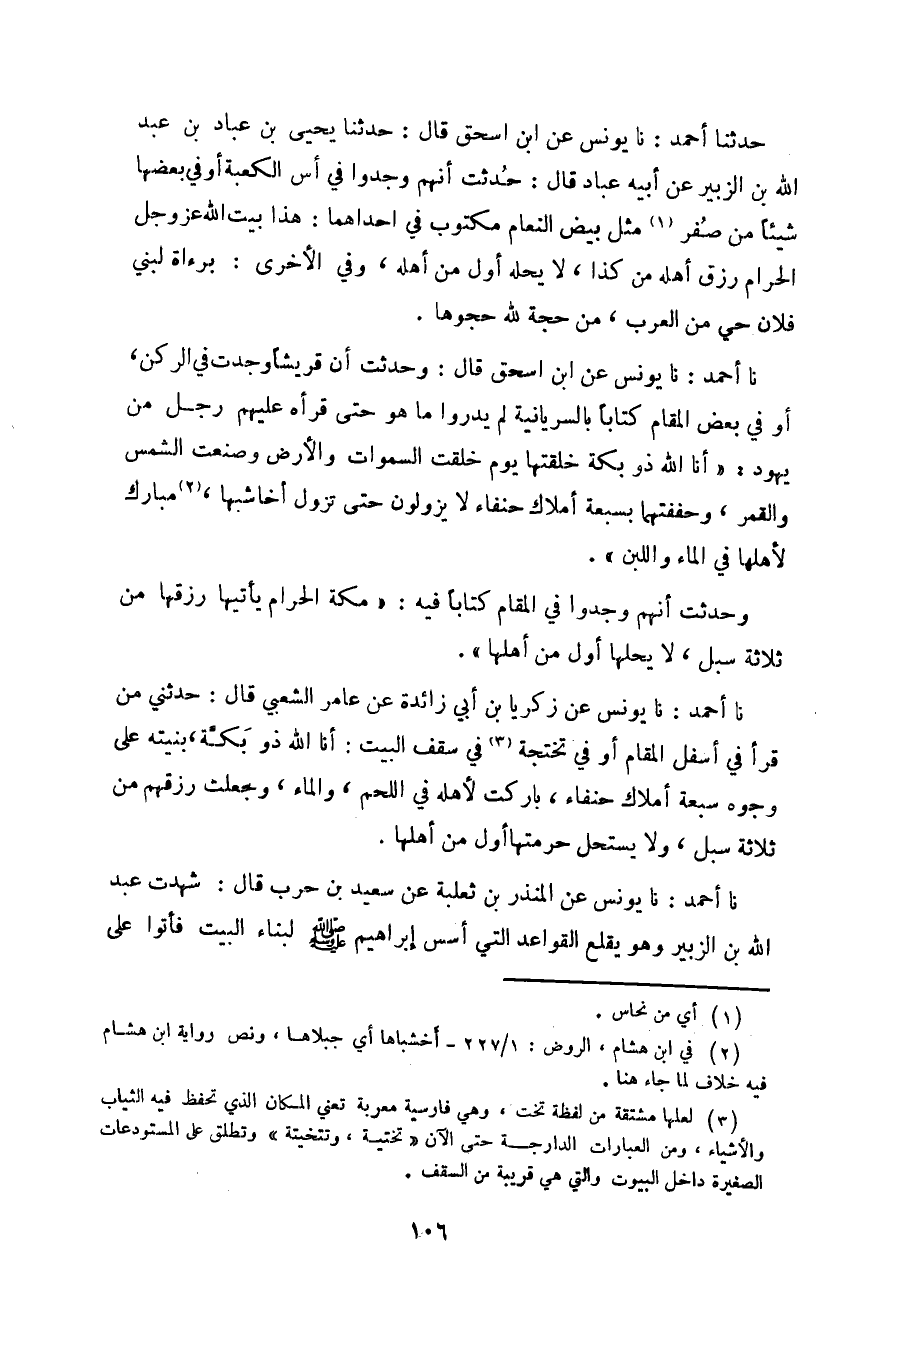 حدثنا أحمد : نا يونس عن ابن اسحق قال : حدثنا يحيى بن عباد بن عبد
الله بن الزبير عن أبيه عباد قال : حُدثت أنهم وجدوا في أس الكعبة أو في بعضها
شيئاً من صُفر (١) مثل بيض النعام مكتوب في احداهما : هذا بيت الله عز وجل
الحرام رزق أهله من كذا ، لا يحله أول من أهله ، وفي الأخرى : برءاة لبني
فلان حي من العرب ، من حجة لله حجوها .
نا أحمد : نا يونس عن ابن اسحق قال : وحدثت أن قريشاً وجدت في الركن ،
أو في بعض المقام كتاباً بالسريانية لم يدروا ما هو حتى قرأه عليهم رجل من
يهود : « أنا الله ذو بكة خلقتها يوم خلقت السموات والأرض وصنعت الشمس
والقمر ، وحففتها بسبعة أملاك حنفاء لا يزولون حتى تزول أخاشبها ،(٢) مبارك
لأهلها في الماء واللبن » .
وحدثت أنهم وجدوا في المقام كتاباً فيه : « مكة الحرام يأتيها رزقها من
ثلاثة سبل ، لا يحلها أول من أهلها » .
نا أحمد : نا يونس عن زكريا بن أبي زائدة عن عامر الشعبي قال : حدثني من
قرأ في أسفل المقام أو في تختجة (٣) في سقف البيت : أنا الله ذو بَكَّة ، بنيته على
وجوه سبعة أملاك حنفاء ، باركت لأهله في اللحم ، والماء ، وجعلت رزقهم من
ثلاثة سبل ، ولا يستحل حرمتها أول من أهلها .
نا أحمد : نا يونس عن المنذر بن ثعلبة عن سعيد بن حرب قال : شهدت عبد
الله بن الزبير وهو يقلع القواعد التي أسس إبراهيم ﷺ لبناء البيت فأتوا على
(١) أي من نحاس .
(٢) في ابن هشام ، الروض : ٢٢٧/١ - أخشباها أي جبلاها ، ونص رواية ابن هشام
فيه خلاف لما جاء هنا .
(٣) لعلها مشتقة من لفظة تخت ، وهي فارسية معربة تعني المكان الذي تحفظ فيه الثياب
والأشياء ، ومن العبارات الدارجة حتى الآن « تختية ، وتتخيتة » وتطلق على المستودعات
الصغيرة داخل البيوت والتي هي قريبة من السقف .
١٠٦